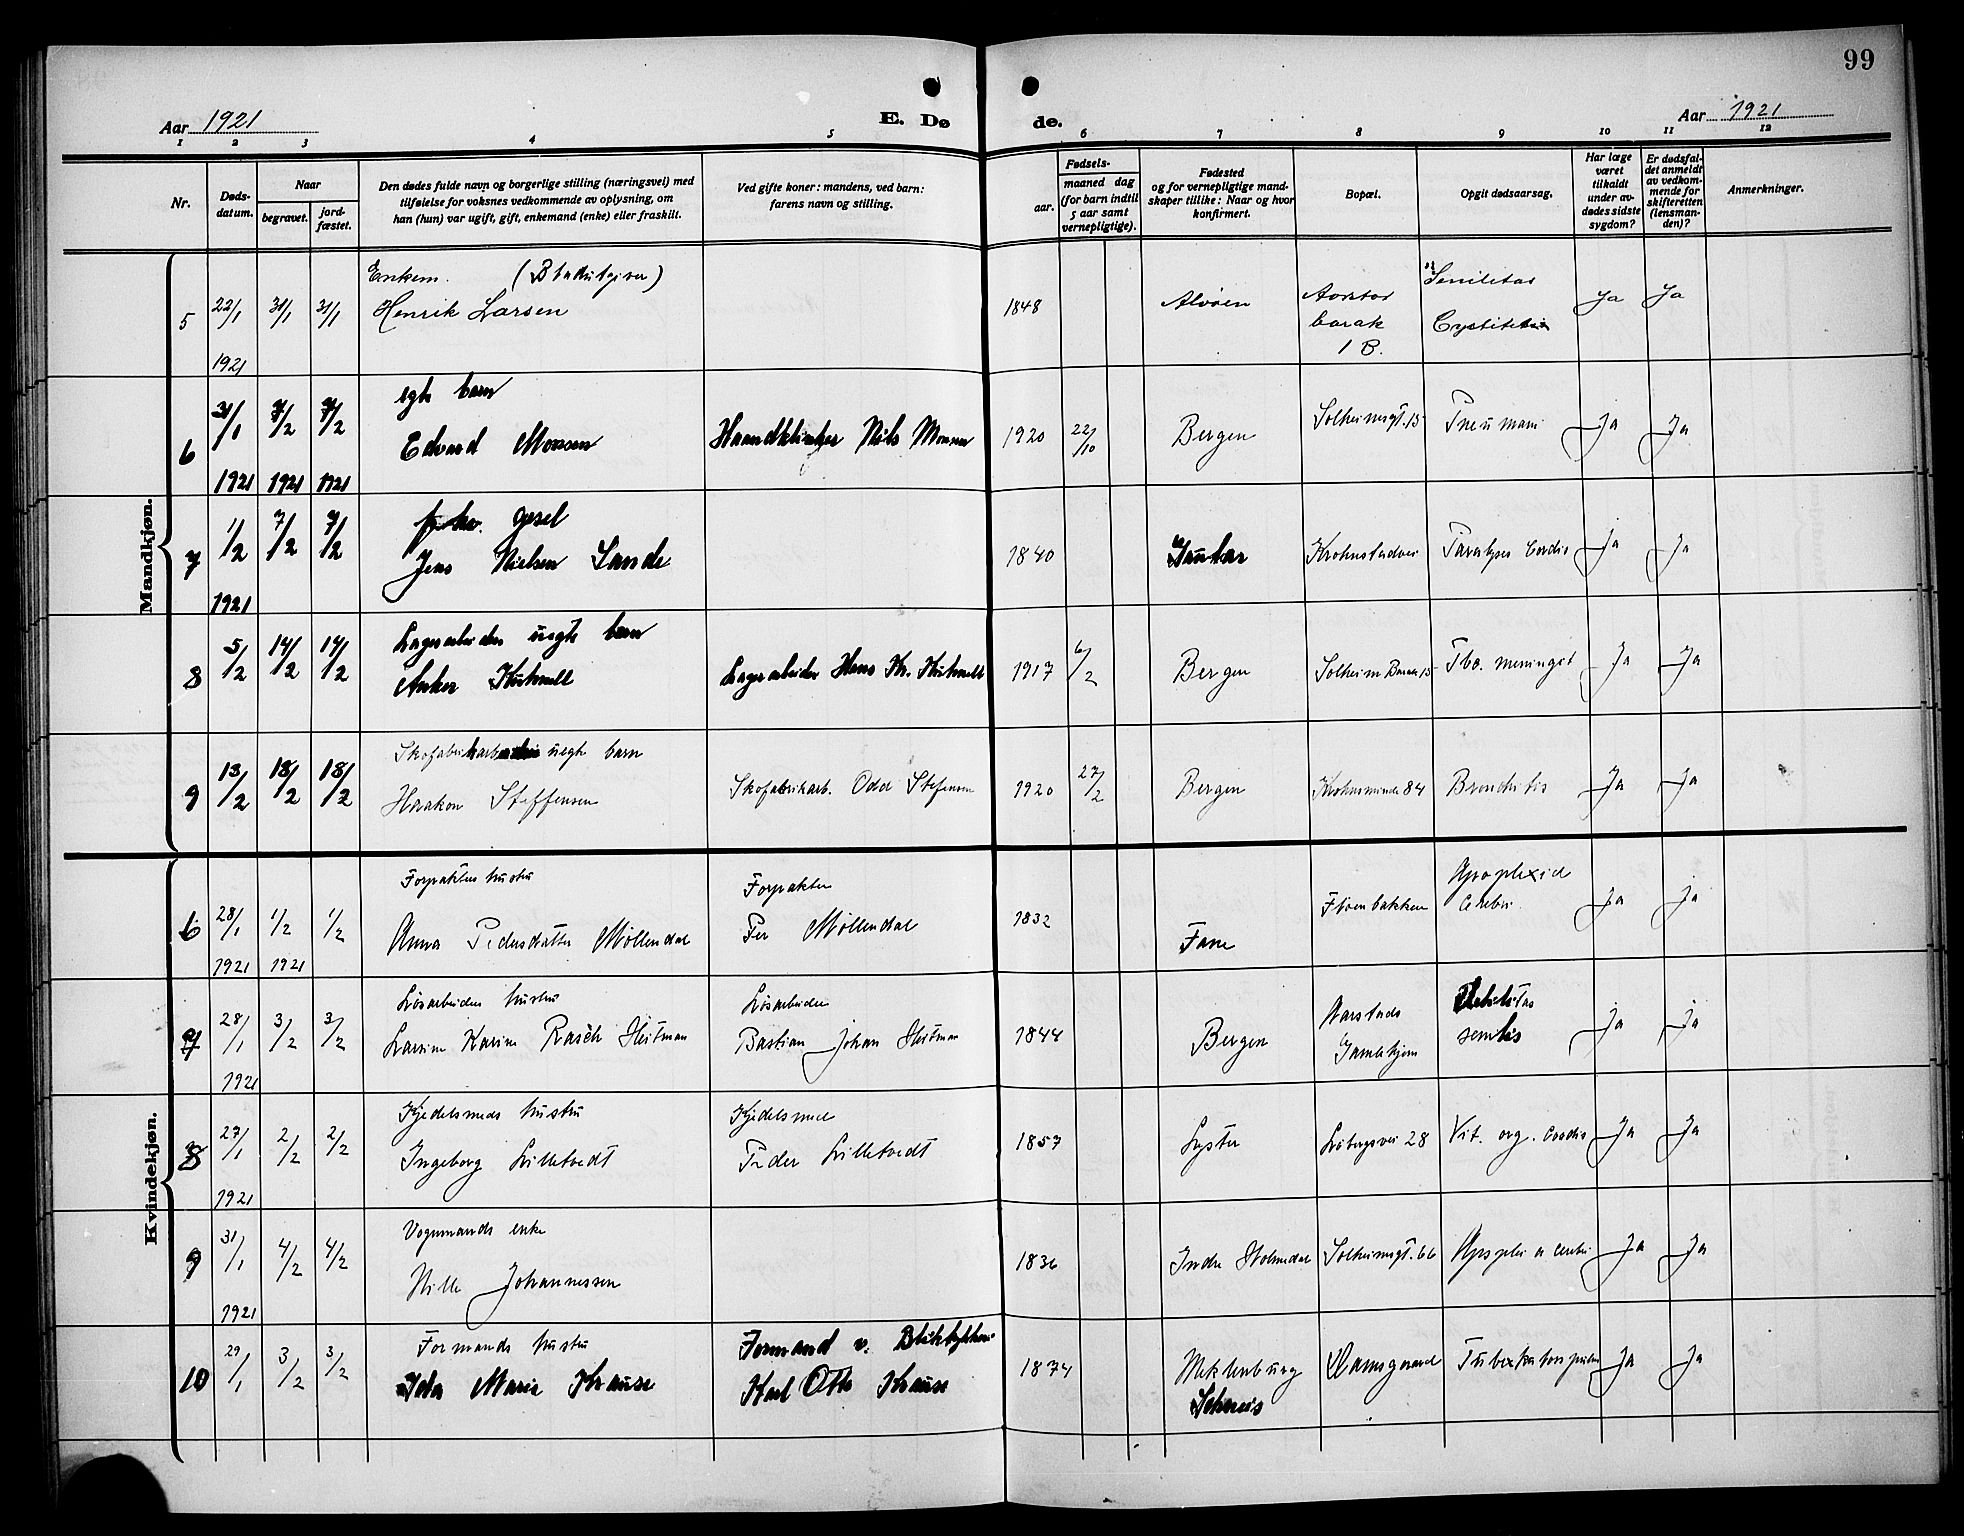 99
Aar 1921
E. Dø
de.
Aar 1921
1 2 3 4 5 6 7 8 9 10 11 12
Nr.
Døds-
datum.
Naar
begravet.
jord-
fæstet.
Den dødes fulde navn og borgerlige stilling (næringsvei) med
tilføielse for voksnes vedkommende av oplysning, om
han (hun) var ugift, gift, enkemand (enke) eller fraskilt.
Ved gifte koner: mandens, ved barn:
farens navn og stilling.
Fødsels-
aar.
maaned dag
(for barn indtil
5 aar samt
vernepligtige).
Fødested
og for vernepligtige mand-
skaper tillike: Naar og hvor
konfirmert.
Bopæl.
Opgit dødsaarsag.
Har læge
været
tilkaldt
under av-
dødes sidste
sygdom?
Er dødsfal-
det anmeldt
av vedkom-
mende for
skifteretten
(lensman-
den)?
Anmerkninger.
Mandkjøn.
Enkem.
5 22/1 31/1 31/1 Henrik Larsen 1848 Alvøen barak Senilitas Ja Ja
1921 1 B.
egte barn
6 31/1 7/2 7/2 Edvard Monsen Nils Monsen 1920 22/10 Bergen Solheimsgt. 15 Ja Ja
1921 1921 1921
7 1/2 7/2 7/2 Jens Nielsen Sande 1840 Krohnstadvei Paralyses Cordis Ja Ja
1921
Lagerarbeider uegte barn
8 5/2 14/2 14/2 Lagerarbeider Hans Kr. 1917 6/2 Bergen Solheim Barak 15 Tbc. meningit Ja Ja
uegte barn
9 13/2 18/2 18/2 Haakon Steffensen Skofabrikarb. Odd Stefensen 1920 27/2 Bergen Krohnsminde 84 Bronchitis Ja Ja
Kvindekjøn.
Forpakters hustru Forpakter
6 28/1 1/2 1/2 Anna Pedersdatter Møllendal Per Møllendal 1832 Fane Fløenbakken Apoplexia Cerebri Ja Ja
1921 1921
Løsarbeiders hustru Løsarbeider
7 28/1 3/2 3/2 Larsine Karine Rasch Heitman Bastian Johan Heitman 1844 Bergen Aarstads Gamlehjem Debilitas senilis Ja Ja
1921
Kjedelsmeds hustru Kjedelsmed
8 27/1 2/2 2/2 Ingeborg Lilletvedt Peder Lilletvedt 1857 Lyster Løbergsvei 28 Vit. org. Cordis Ja Ja
1921
Vognmands enke
9 31/1 4/2 4/2 Nille Johannessen 1836 Indre Holmedal Solheimsgt. 66 cerebri Ja Ja
1921
Formands hustru Formand v.
10 29/1 3/2 3/2 Ida Marie Krause Karl Otto Krause 1874 Meklenburg Damsgaard Ja Ja